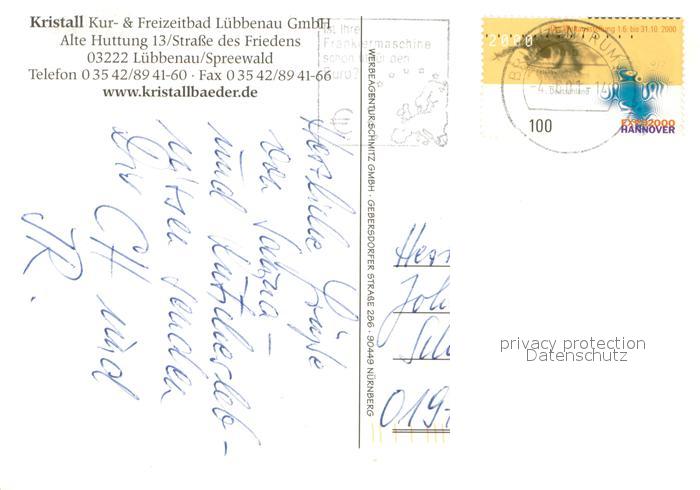 Kristall Kur- & Freizeitbad Lübbenau GmbH
Alte Huttung 13/Straße des Friedens
03222 Lübbenau/Spreewald
Telefon 0 35 42/89 41-60 · Fax 0 35 42/89 41-66
www.kristallbaeder.de
Ist Ihre
Frankiermaschine
schon für den
Euro?
WERBEAGENTUR SCHMITZ GMBH · GEBERSDORFER STRAßE 286 · 90449 NÜRNBERG
2000
1.6. bis 31.10. 2000
Deutschland
100
EXPO2000
HANNOVER
Herzliche Grüße
von
und
senden
Dir CH und
JR.
Herr
Joh
Sch
019
privacy protection
Datenschutz